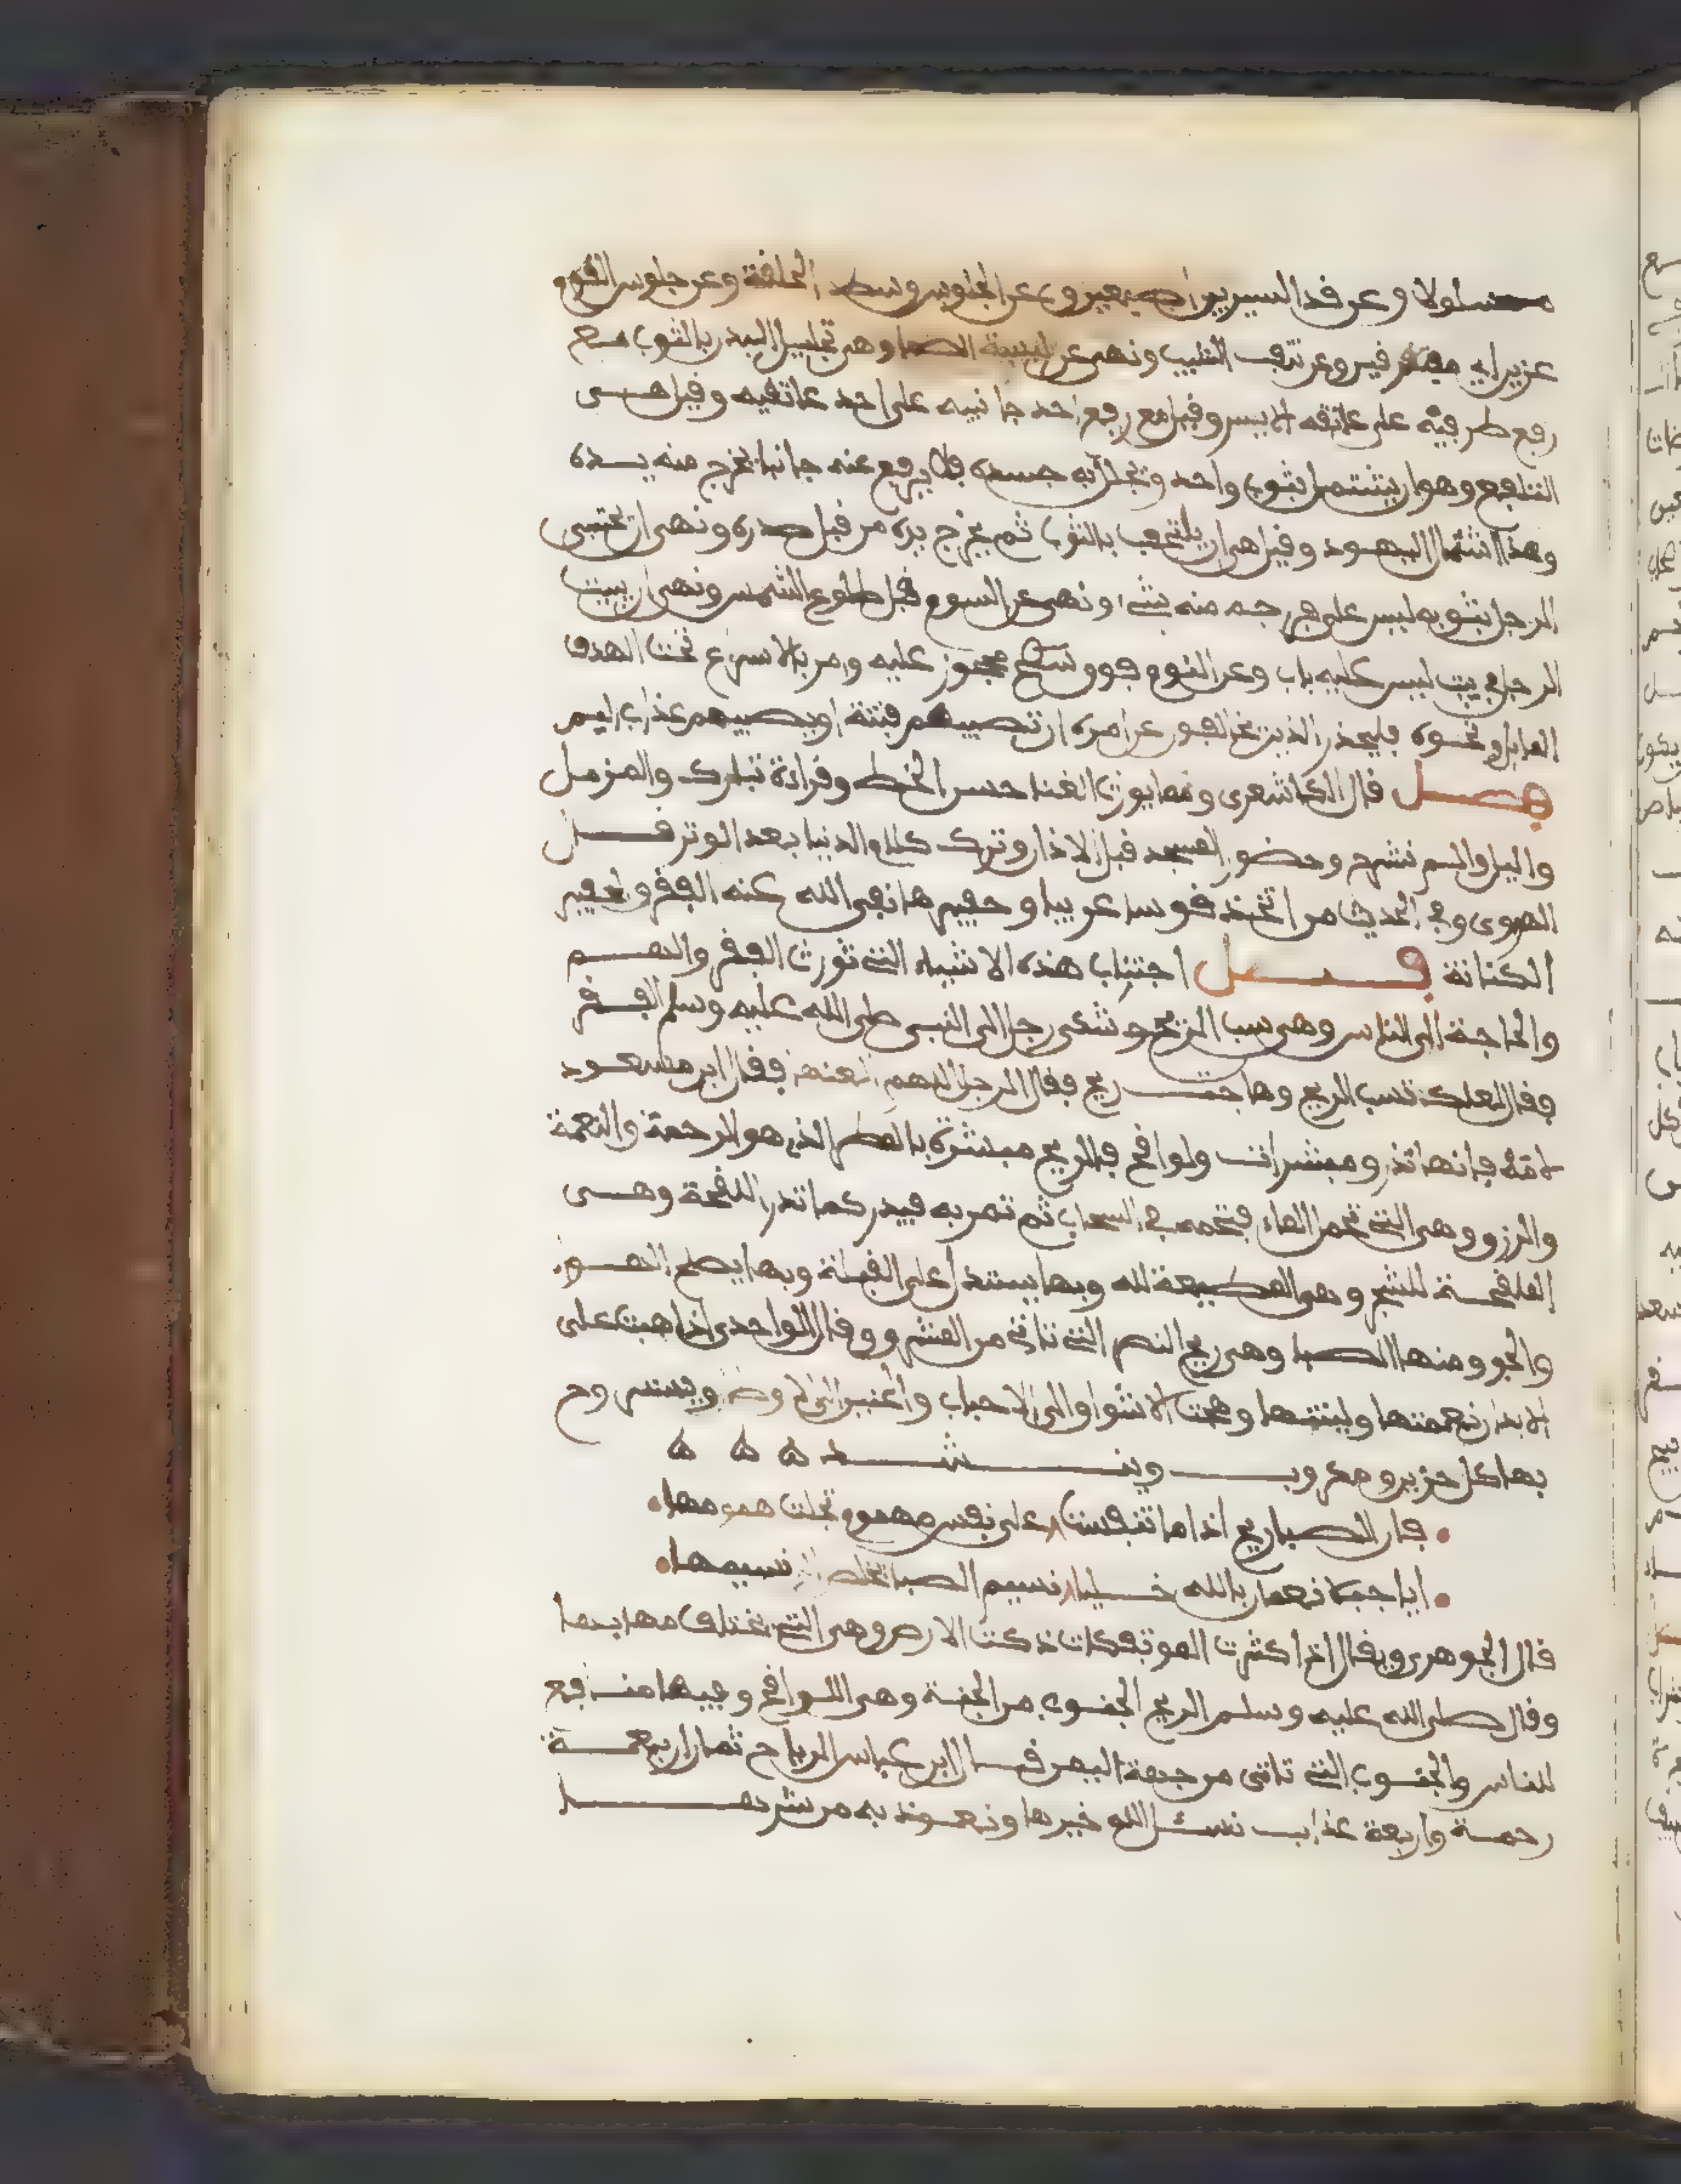 مسلولا وعن قد السير بين اصبعين وعن الجلوس وسط الحلقة وعن جلوس القوم
عزين اي متفرقين وعن نتف الشيب ونهى عن لبسة الصما وهي تجليل البدن بالثوب مع
رفع طرفيه على عاتقه الايسر وقيل مع رفع احد جانبيه على احد عاتقيه وقيل هي
التلفع وهو ان يشتمل بثوب واحد وتجلل به جسده فلا يرفع عنه جانبا تخرج منه يده
وهذا اشتمال اليهود وقيل هي ان يلتحف بالثوب ثم يخرج يده من قبل صدره ونهى ان يحتبي
الرجل بثوبه ليس على فرجه منه شيء ونهى عن السوم قبل طلوع الشمس ونهى ان يبيت
الرجل في بيت ليس عليه باب وعن النوم فوق سطح محجوز عليه وامر بالاسراع تحت الهدف
المايل ونحوه فليحذر الذين يخالفون عن امره ان تصيبهم فتنة او يصيبهم عذاب اليم
فصل قال الكاشعري ومما يورث الغنا حسن الخط وقراءة تبارك والمزمل
واليل والم نشرح وحضور المسجد قبل الاذان وترك كلام الدنيا بعد الوتر قال
الهروي وفي الحديث من اتخذ قوسا عربيا وحفيرها نفى الله عنه الفقر والحفير
الكنانة فصل اجتناب هذه الاشياء التي تورث الفقر والهم
والحاجة الى الناس وهي سب الريح وشكى رجل الى النبي صلى الله عليه وسلم الفقر
فقال لعلك تسب الريح وهاجت ريح فقال الرجل اللهم العنها فقال ابن مسعود
لامه فانها نذر ومبشرات ولواقح فالريح مبشرة بالمطر الذي هو الرحمة والنعمة
والرزق وهي التي تحمل الماء فتجمه في السحاب ثم تمر به فيدر كما تدر اللقحة وهي
الملقحة للشجر وهي المطيعة لله وبها يستدل على القبلة وبها يصلح الهواء
والجو ومنها الصبا وهي ريح النصر التي تاتي من المشرق وقال الواحدي اذا هبت على
الابدان نعمتها ولينتها وهيجت الاشواق الى الاحباب والحنين الى الاوطان ويستروح
بها كل حزين ومكروب وينشد ه ه ه
فان الصبا ريح اذا ما تنفست على نفس مهموم تجلت همومها
ايا جبلا نعمان بالله خليا نسيم الصبا تخلص الي نسيمها
قال الجوهري ويقال اذا كثرت الموتفكات زكت الارض وهي التي تختلف مهابها
وقال صلى الله عليه وسلم الريح الجنوب من الجنة وهي اللواقح وفيها منافع
للناس والجنوب التي تاتي من جهة اليمن قال ابن عباس الرياح ثمان اربعة
رحمة واربعة عذاب نسئل الله خيرها ونعوذ به من شرها